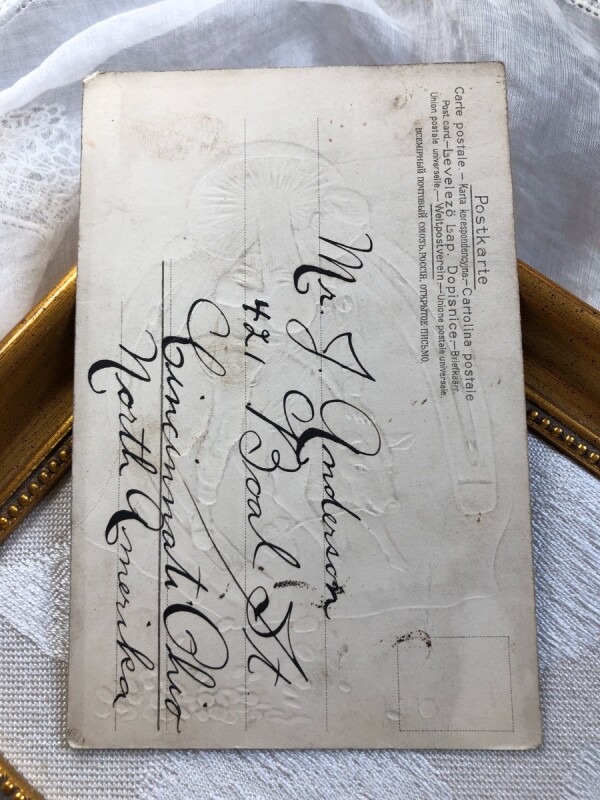 Postkarte
Carte postale.—Karta korespondencyjna.—Cartolina postale
Post card—Levelező Lap. Dopisnice.—Briefkaart.
Union postale universelle.—Weltpostverein—Unione postale universale.
ВСЕМІРНЫЙ ПОЧТОВЫЙ СОЮЗЪ. РОССІЯ. ОТКРЫТОЕ ПИСЬМО.
Mr. J. Anderson
421 Boal. St
Cincinnati Ohio
North Amerika